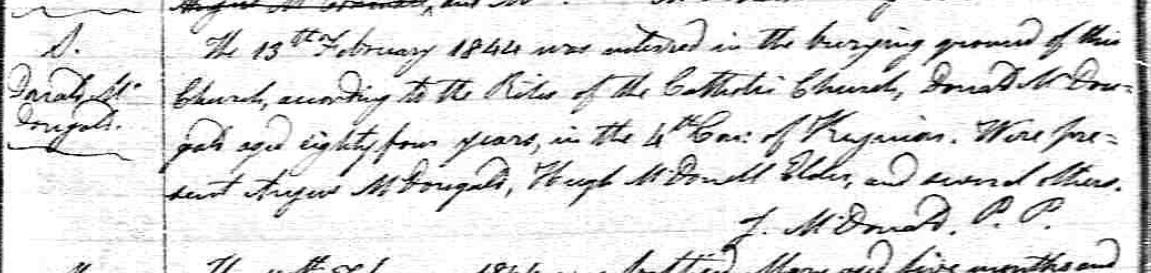 S.
Donald Mc
Dougald.
The 13th February 1844 was interred in the burying ground of this
Church, according to the Rites of the Catholic Church, Donald McDou=
gald aged eighty four years, in the 4th Con: of Kenyon. Were pre=
sent Angus McDougald, Hugh McDonell Elder, and several others.
J. McDonald. P. P.
1844 Mary aged five months and